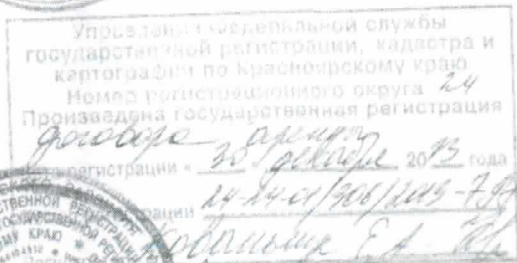 Управление Федеральной службы
государственной регистрации, кадастра и
картографии по Красноярскому краю
Номер регистрационного округа 24
Произведена государственная регистрация
договора аренды
регистрации « 30 » декабря 2013 года
24-24-01/306/2013-